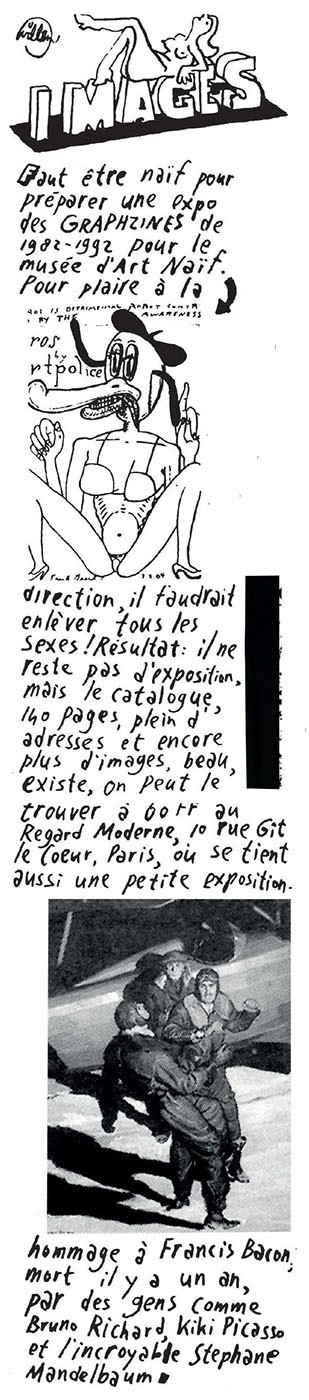 Willem
IMAGES
Faut être naïf pour
préparer une expo
des GRAPHZINES de
1982-1992 pour le
musée d'Art Naïf.
Pour plaire à la
IS DETRIMENTAL ROBOT CONTR
BY THE AWARENESS
ros
by
rtpolice
direction, il faudrait
enlèver tous les
sexes! Résultat: il ne
reste pas d'exposition,
mais le catalogue,
140 pages, plein d'
adresses et encore
plus d'images, beau,
existe, on peut le
trouver à 60 FF au
Regard Moderne, 10 rue Gît
le Coeur, Paris, où se tient
aussi une petite exposition.
hommage à Francis Bacon,
mort il y a un an,
par des gens comme
Bruno Richard, Kiki Picasso
et l'incroyable Stephane
Mandelbaum